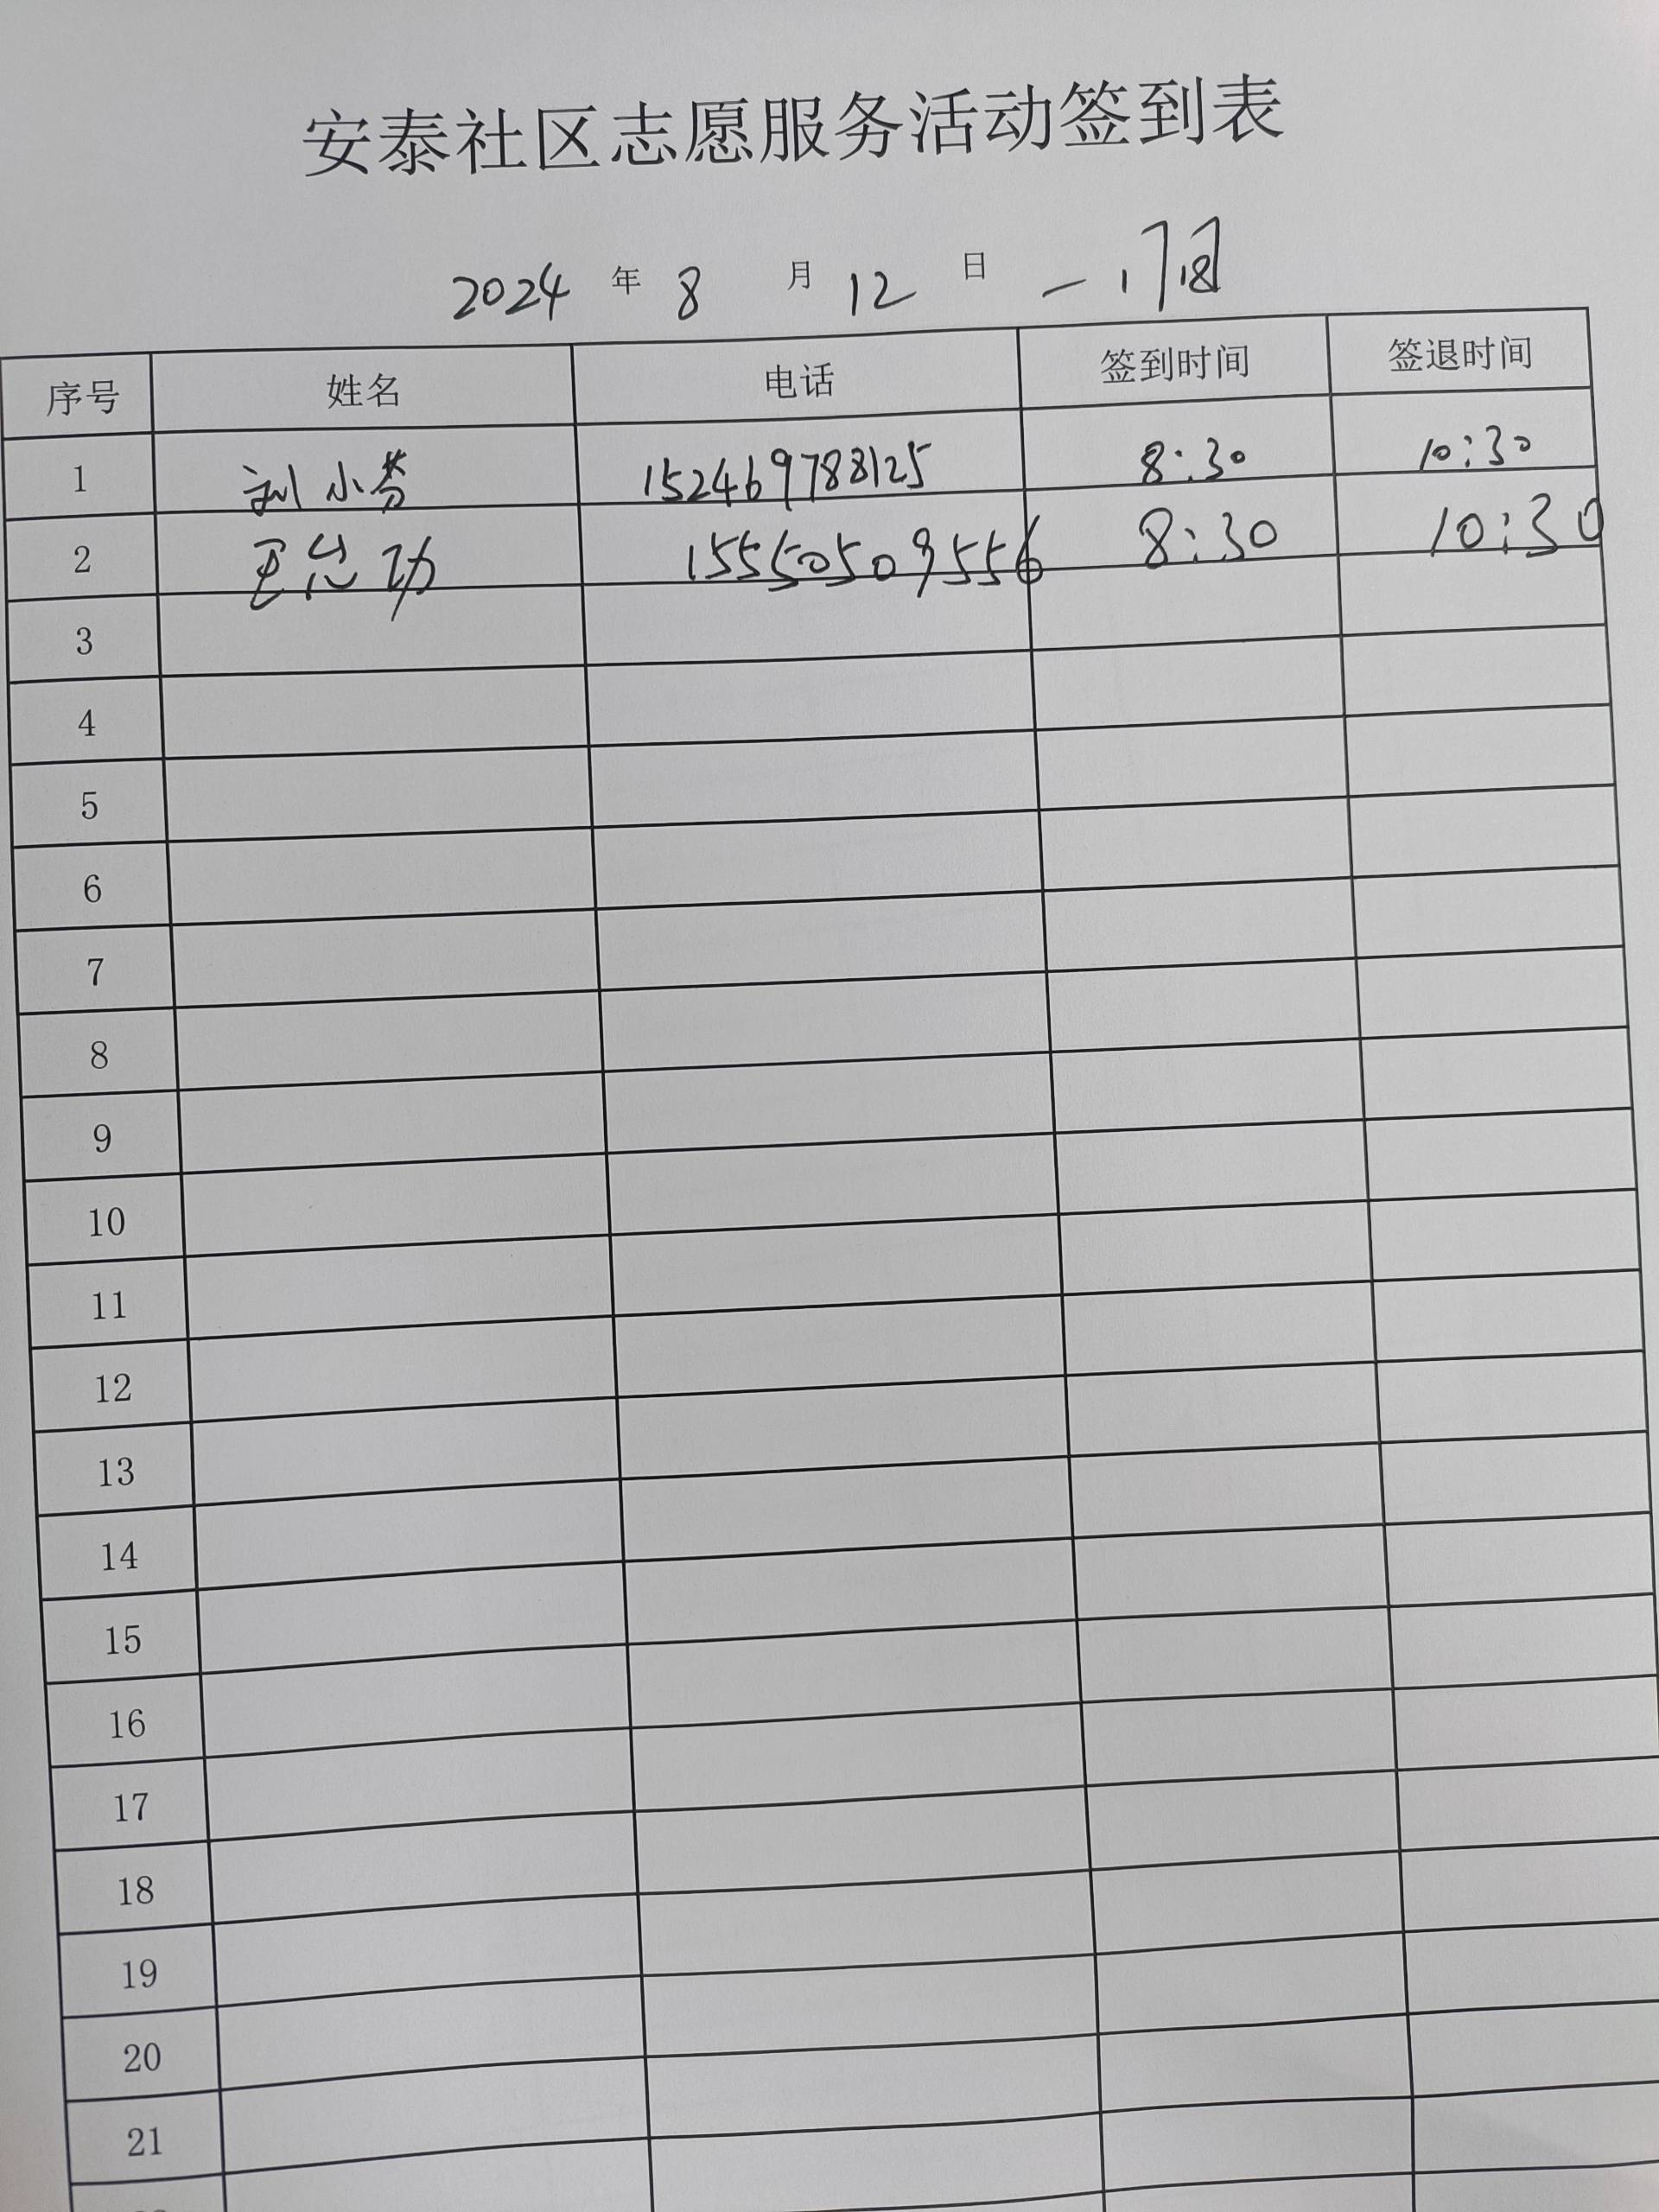 安泰社区志愿服务活动签到表
2024 年 8 月 12 日
序号 姓名 电话 签到时间 签退时间
1 刘小芬 152469788125 8:30 10:30
2 功 15550509556 8:30 10:30
3
4
5
6
7
8
9
10
11
12
13
14
15
16
17
18
19
20
21